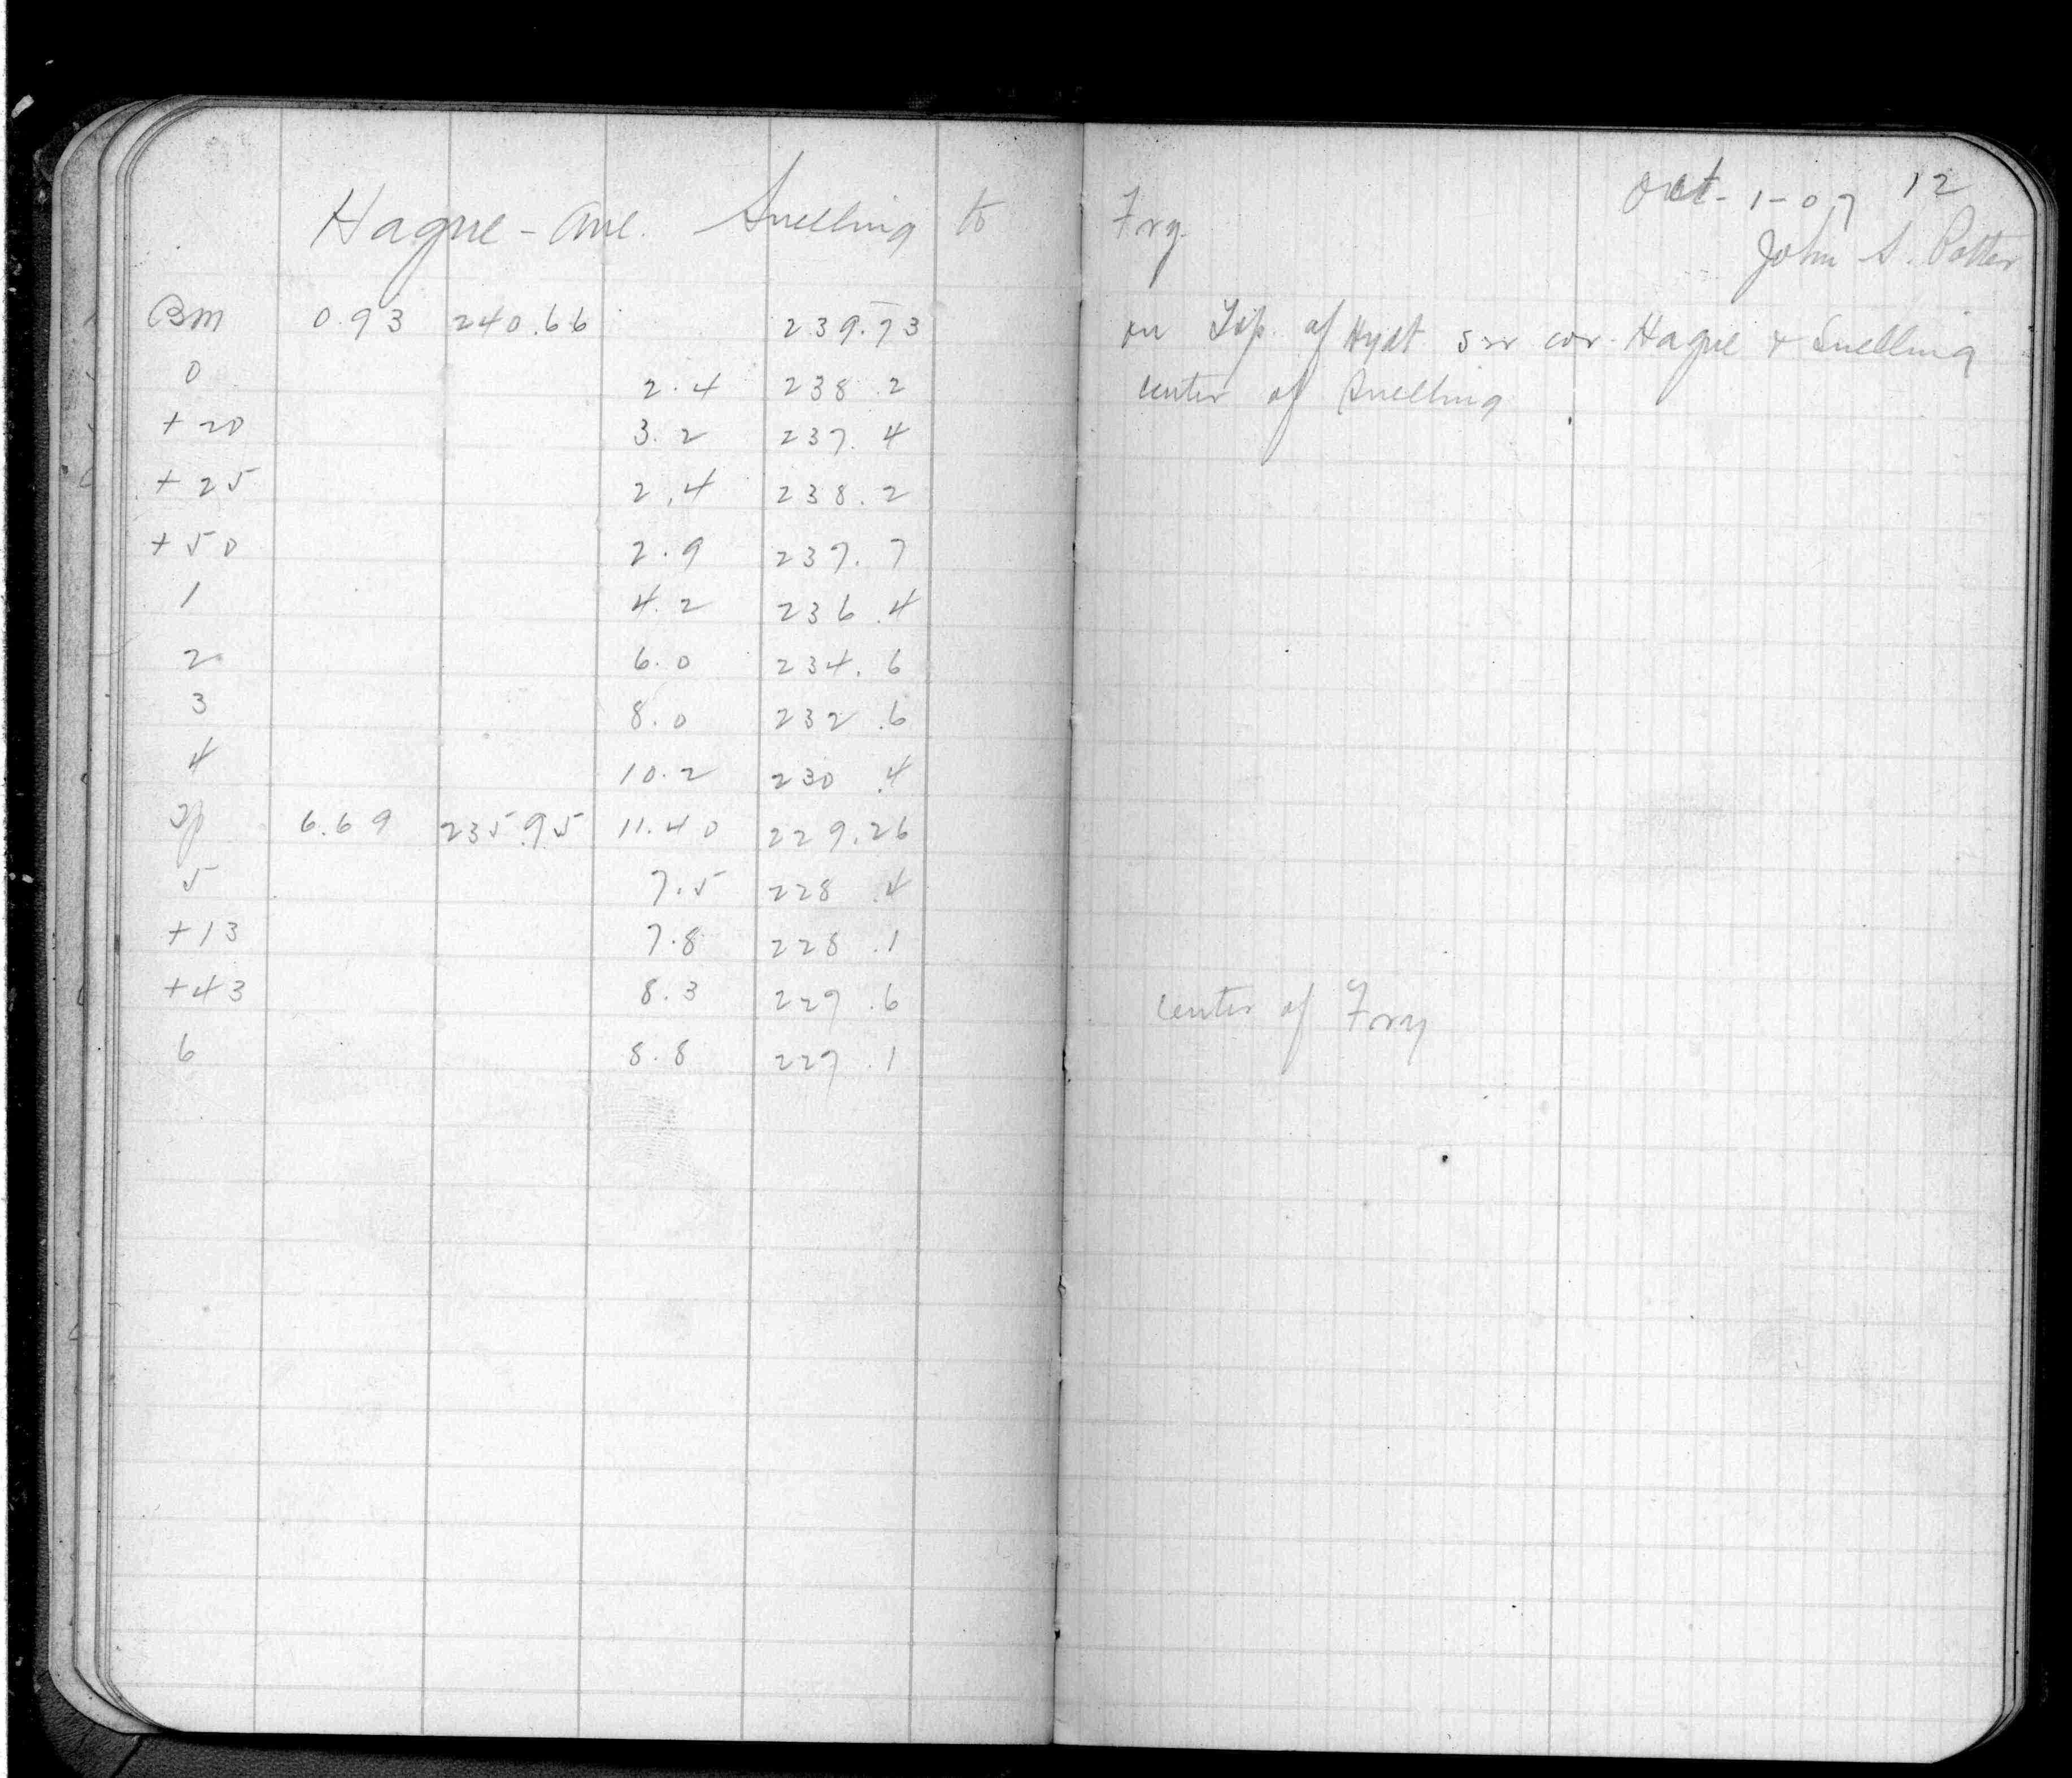 Oct-1-07 12
Hague-Ave. Snelling to Fry.
John S. Potter
BM 0.93 240.66 239.73 on Top of Hydt SW cor. Hague & Snelling
0 2.4 238.2 center of Snelling
+20 3.2 237.4
+25 2.4 238.2
+50 2.9 237.7
1 4.2 236.4
2 6.0 234.6
3 8.0 232.6
4 10.2 230.4
TP 6.69 235.95 11.40 229.26
5 7.5 228.4
+13 7.8 228.1
+43 8.3 227.6 center of Fry
6 8.8 227.1